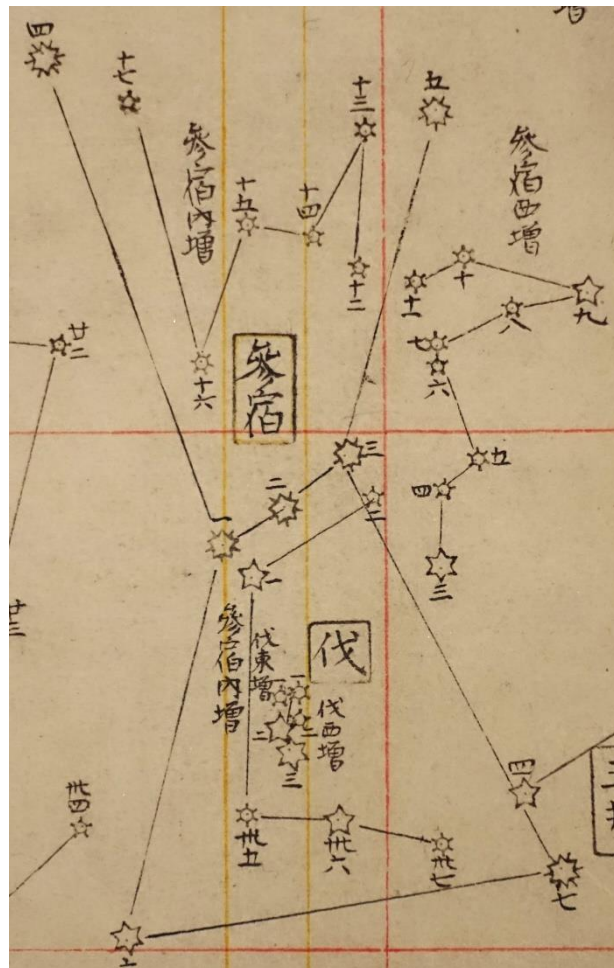 增
四
十七
十三
五
參宿內增
參宿西增
十五
十四
十二
十
十一
九
八
七
六
廿二
十六
參宿
三
五
四
二
二
一
三
一
廿三
參宿內增
伐東增
伐
伐西增
一
一
二
二
三
四
卅四
卅五
卅六
卅七
七
六